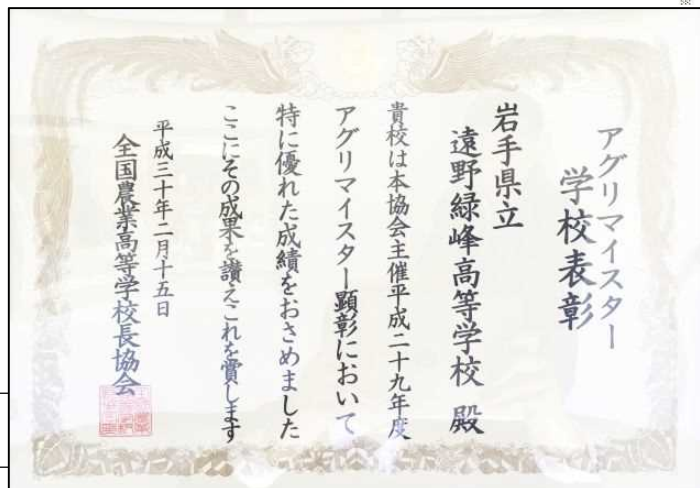 アグリマイスター
学校表彰
岩手県立
遠野緑峰高等学校 殿
貴校は本協会主催平成二十九年度
アグリマイスター顕彰において
特に優れた成績をおさめました
ここにその成果を讃えこれを賞します
平成三十年二月十五日
全国農業高等学校長協会